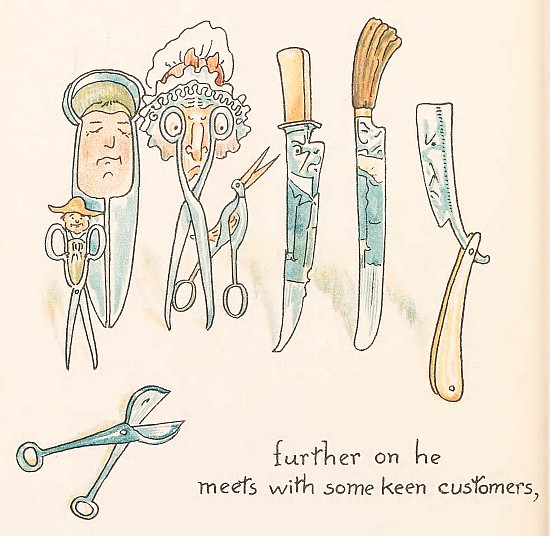 further on he
meets with some keen customers,